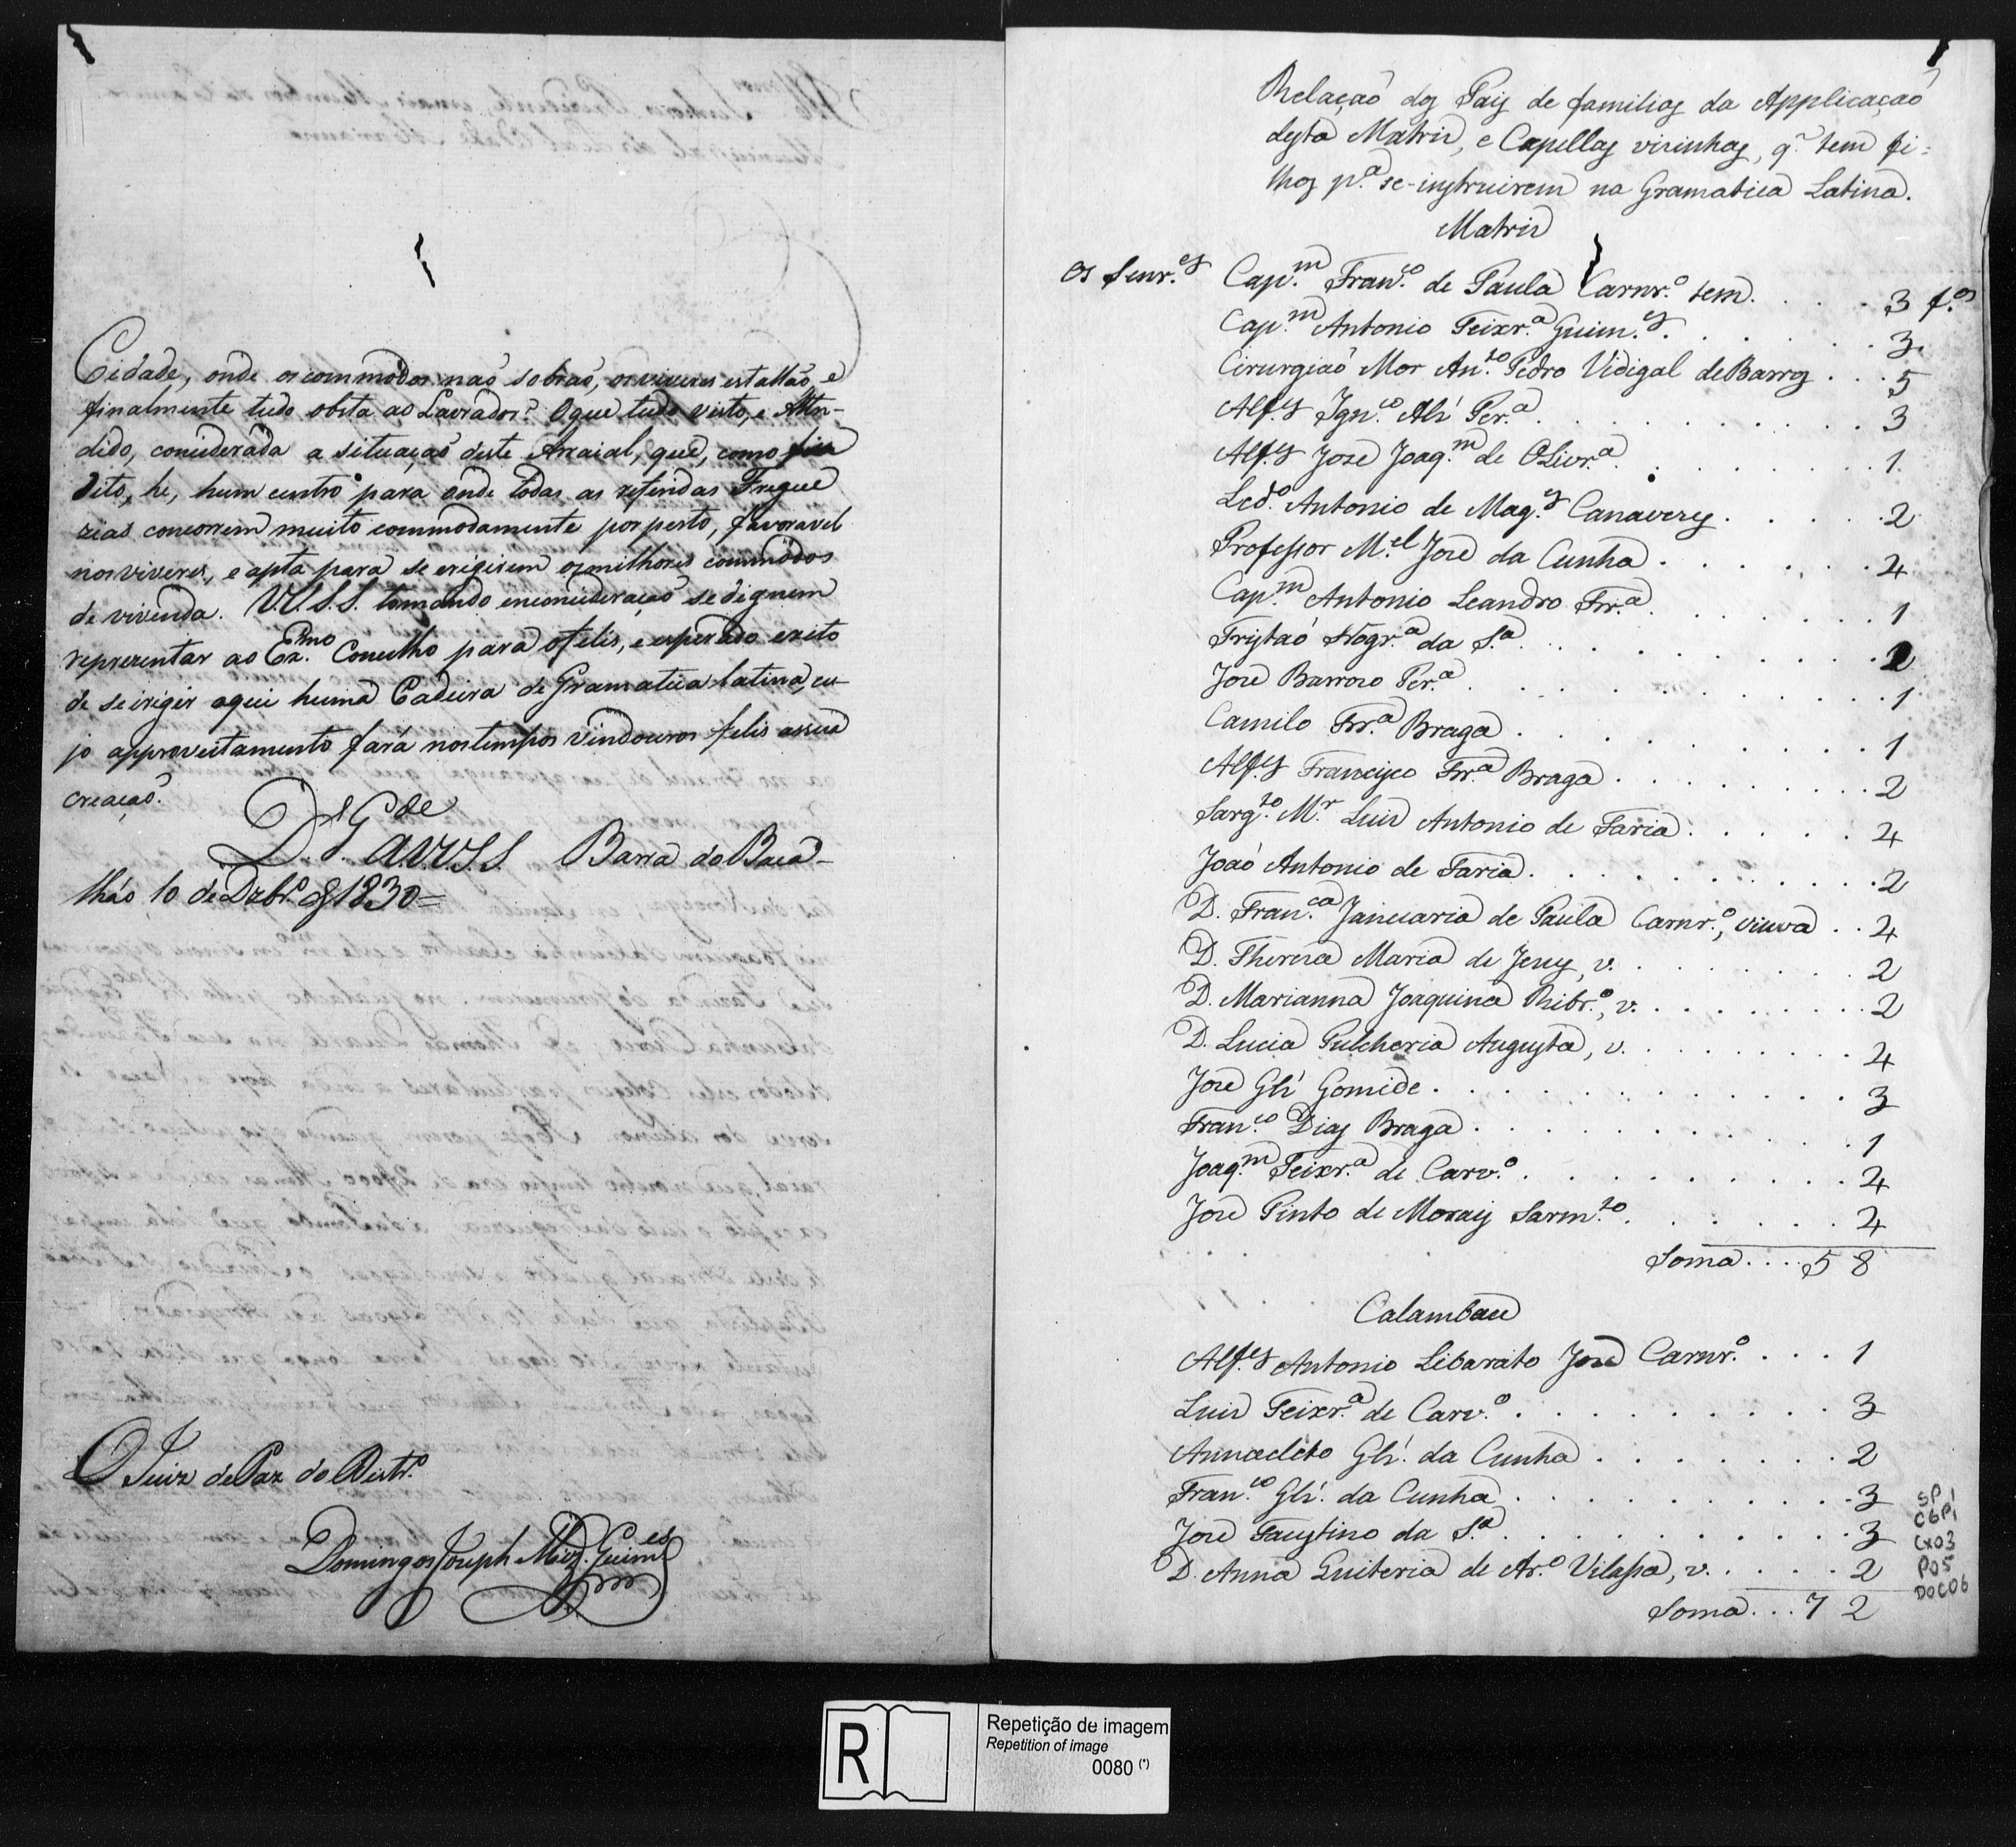 Cidade, onde os commodos naõ sobraõ, os viveres estallaõ, e
finalmente tudo obsta ao Lavrador? O que tudo visto, e Atten-
dido, considerada a situaçaõ deste Arraial, que, como fica
dito, he, hum centro para onde todas as referidas Fregue
zias concorrem muito commodamente por perto, favoravel
nos viveres, e apta para se erigirem os milhores commodos
de vivenda. V.V.S.S. tomando em consideraçaõ se dignem
reprezentar ao Ex.mo Conselho para o felis, e esperado exito
de se irigir aqui huma Cadeira de Gramatica latina, cu-
jo approveitamento fará nos tempos vindouros felis a sua
creaçaõ.
D.s G.de
a V.V.S.S. Barra do Baca-
lháo 10 de Dzbr.o de 1830=
O Juiz de Paz do Distr.o
Domingos Joseph Miz. Guim.es
Relaçaõ dos Pais de familias da Applicaçaõ
desta Matriz, e Capellas visinhas, q.' tem fi=
lhos p.a se-instruirem na Gramatica Latina.
Matriz
Os Senr.es Cap.m Fran.co de Paula Carnr.o tem. . . . . 3 f.os
Cap.m Antonio Teixr.a Guim.es . . . . . . . 3
Cirurgiaõ Mor An.to Pedro Vidigal de Barros . . . 5
Alf.es Ign.co Alz' Per.a . . . . . . . . . . . 3
Alf.es Joze Joaq.m de Olivr.a . . . . . . . . 1
Lcd.o Antonio de Mag.es Canaverys . . . . . . 2
Professor M.el Joze da Cunha . . . . . . 4
Cap.m Antonio Leandro Frr.a . . . . . . . 1
Tristaõ Nogr.a da S.a . . . . . . . . . . . 2
Joze Barrozo Per.a . . . . . . . . . . . 1
Camilo Frr.a Braga . . . . . . . . . . . 1
Alf.es Francisco Frr.a Braga . . . . . . . . . 2
Sarg.to M.r Luiz Antonio de Faria . . . . . 4
Joaõ Antonio de Faria . . . . . . . . . . . 2
D. Fran.ca Januaria de Paula Carnr.o, viuva . . 4
D. Thereza Maria de Jesus, v. . . . . . . . . 2
D. Marianna Joaquina Ribr.o, v. . . . . . . . . . 2
D. Lucia Pulcheria Augusta, v. . . . . . . . . . 4
Joze Glz' Gomide . . . . . . . . . . . . . 3
Fran.co Dias Braga . . . . . . . . . . . . 1
Joaq.m Teixr.a de Carv.o . . . . . . . . . . 4
Joze Pinto de Morais Sarm.to . . . . . . . 4
Soma . . . . 5 8
Calambau
Alf.es Antonio Libarato Joze Carnr.o . . . . 1
Luiz Teixr.a de Carv.o . . . . . . . . . . 3
Annacleto Glz'. da Cunha . . . . . . . . 2
Fran.co Glz'. da Cunha . . . . . . . . . . 3
Joze Faustino da S.a . . . . . . . . . . . 3
D. Anna Quiteria de Ar.o Vilassa, v. . . . . . 2
Soma . . . 7 2
SP
C6P1
Cx03
P05
DOC06
R
Repetição de imagem
Repetition of image
0080 (*)